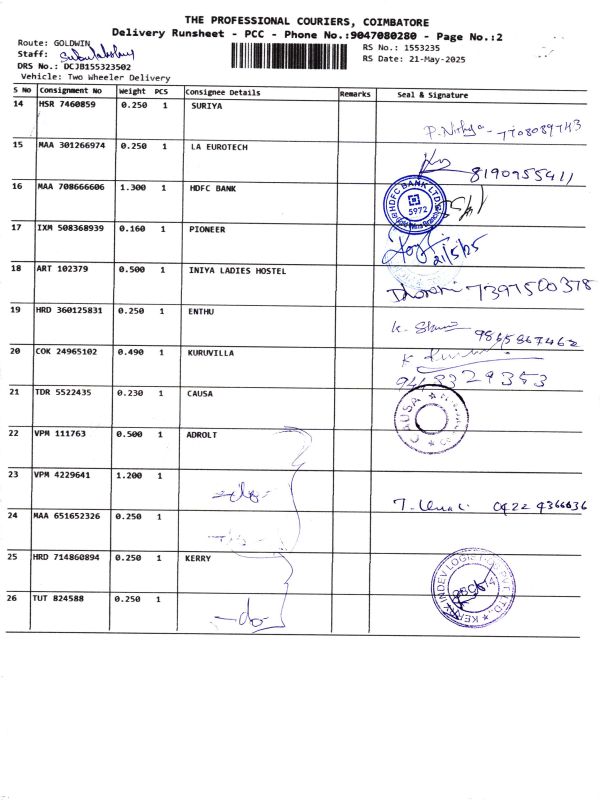 THE PROFESSIONAL COURIERS, COIMBATORE
Delivery Runsheet - PCC - Phone No.:9047080280 - Page No.:2
Route: GOLDWIN
RS No.: 1553235
Staff:
RS Date: 21-May-2025
DRS No.: DCJB155323502
Vehicle: Two Wheeler Delivery
S No Consignment No Weight PCS Consignee Details Remarks Seal & Signature
14 HSR 7460859 0.250 1 SURIYA
P. Nithya - 7708089743
15 MAA 301266974 0.250 1 LA EUROTECH
8190955411
16 MAA 708666606 1.300 1 HDFC BANK
HDFC BANK LTD
5972
17 IXM 508368939 0.160 1 PIONEER
21/5/25
18 ART 102379 0.500 1 INIYA LADIES HOSTEL
7397500378
19 HRD 360125831 0.250 1 ENTHU
9865867462
20 COK 24965102 0.490 1 KURUVILLA
21 TDR 5522435 0.230 1 CAUSA
CAUSA
22 VPM 111763 0.500 1 ADROLT
23 VPM 4229641 1.200 1
-do-
0422 4366636
24 MAA 651652326 0.250 1
25 HRD 714860894 0.250 1 KERRY
KERRY INDEV LOGISTICS PVT LTD.,
26 TUT 824588 0.250 1
-do-